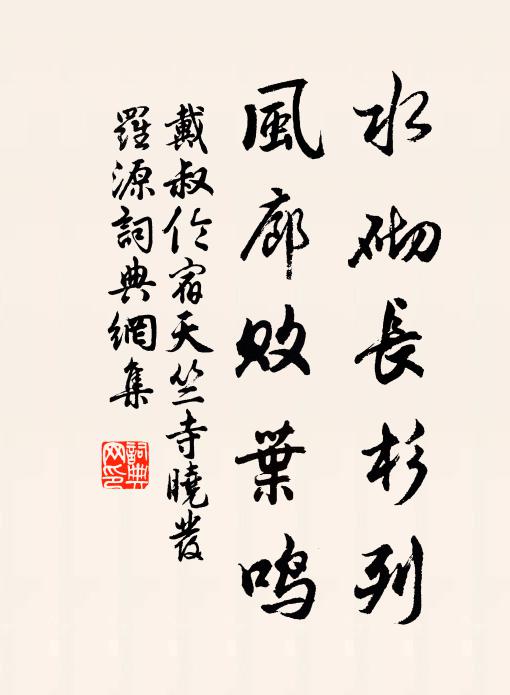 水砌長杉列
風廊敗葉鳴
戴叔伦宿天竺寺曉發
羅源詞典網集
詞典網印